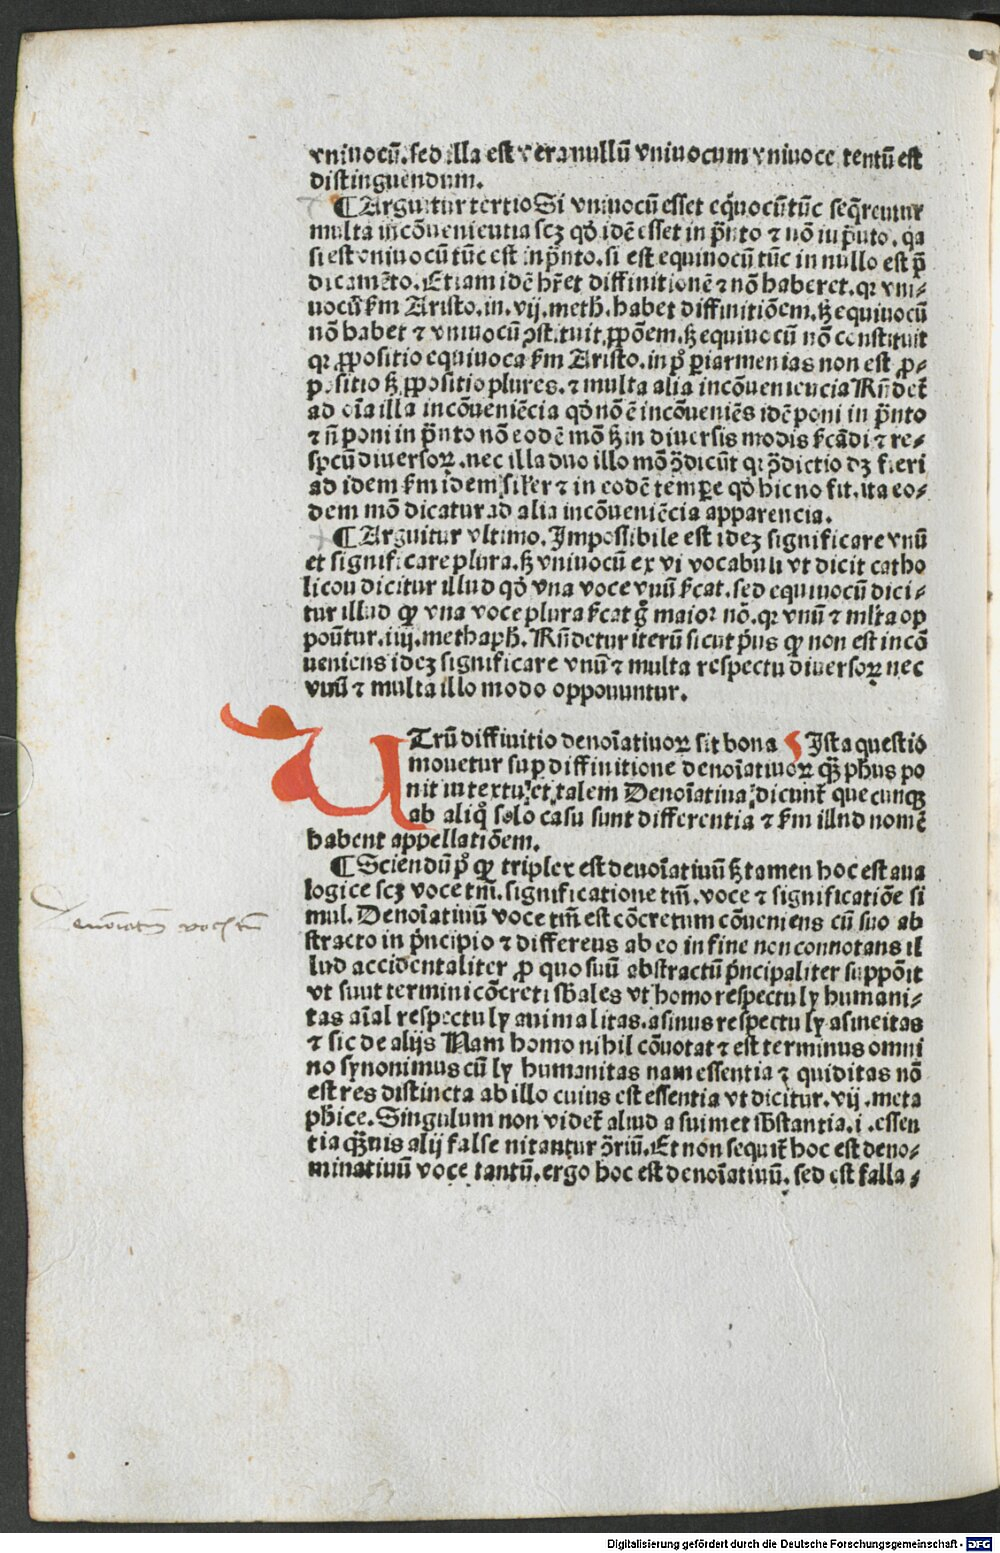 vniuocū.sed illa est vera nullū vniuocum vniuoce tentū est
distinguendum.
¶ Arguitur tertio Si vniuocū esset eq̄uocū tūc seq̄rentur
multa incōuenientia scꝫ qđ idē esset in p̄nto ⁊ nō in p̄nto.qa
si est vniuocū tūc est in p̄nto.si est equiuocū tūc in nullo est p̄
dicamēto.Etiam idē hr̄et diffinitionē ⁊ nō haberet.qr vni⸗
uocū ẜm Aristo.in.vij.meth̄.habet diffinitiōem.sꝫ equiuocū
nō habet ⁊ vniuocū ↄstituit ꝓpōem.sꝫ equiuocū nō constituit
qr ꝓpositio equiuoca ẜm Aristo.in p̊ ꝑiarmenias non est ꝓ⸗
positio sꝫ ꝓpositio plures.⁊ multa alia incōueniencia Rn̄det̄
ad oīa illa incōueniēcia qđ nō ē incōueniēs idē poni in p̄nto
⁊ n̄ poni in p̄nto nō eodē mō sꝫ in diuersis modis ẜcādi ⁊ re⸗
spcū diuersoꝝ.nec illa duo illo mō ꝯ̄dicūt qr ꝯ̄dictio dꝫ fieri
ad idem ẜm idem sil̄r ⁊ in eodē tempe qđ hic no fit.ita eo⸗
dem mō dicatur ad alia incōueniēcia apparencia.
¶ Arguitur vltimo.Impossibile est ideꝫ significare vnū
et significare plura.sꝫ vniuocū ex vi vocabuli vt dicit catho
licon dicitur illud qđ vna voce vnū ẜcat.sed equiuocū dici⸗
tur illud qꝫ vna voce plura ẜcat g̊ maior nō.qr vnū ⁊ ml̄ta op
ponūtur.iiij.methaph̄.Rn̄detur iterū sicut p̄us qꝫ non est incō
ueniens ideꝫ significare vnū ⁊ multa respectu diuersoꝝ nec
vnū ⁊ multa illo modo opponuntur.
UTrū diffinitio denoīatiuoꝝ sit bona ¶ Ista questio
mouetur supꝑ diffinitione denoīatiuoꝝ qꝫ̄ ph̄us po
nit in textu.et talem Denoīatiua dicunt̄ quecunqꝫ
ab aliq̊ solo casu sunt differentia ⁊ ẜm illud nomē
habent appellatiōem.
¶ Sciendū p̊ qꝫ triplex est denoīatiuū sꝫ tamen hoc est ana
logice scꝫ voce tm̄.significatione tm̄.voce ⁊ significatiōe si
mul.Denoīatiuū voce tm̄ est cōcretum cōueniens cū suo ab
stracto in p̄ncipio ⁊ differens ab eo in fine non connotans il
lud accidentaliter ꝓ quo suū abstractū p̄ncipaliter suppōit
vt sunt termini cōcreti sb̄ales vt homo respectu ly humani⸗
tas aīal respectu ly animalitas.asinus respectu ly asineitas
⁊ sic de alijs Nam homo nihil cōnotat ⁊ est terminus omni
no synonimus cū ly humanitas nam essentia ⁊ quiditas nō
est res distincta ab illo cuius est essentia vt dicitur.vij.meta
phice.Singulum non videt̄ aliud a suimet sb̄stantia.i.essen
tia qꝫ̄uis alij false nitantur ꝯ̄riū.Et non sequit̄ hoc est deno⸗
minatiuū voce tantū.ergo hoc est denoīatiuū.sed est falla⸗
Denoīatm̄ voce tm̄
Digitalisierung gefördert durch die Deutsche Forschungsgemeinschaft - DFG